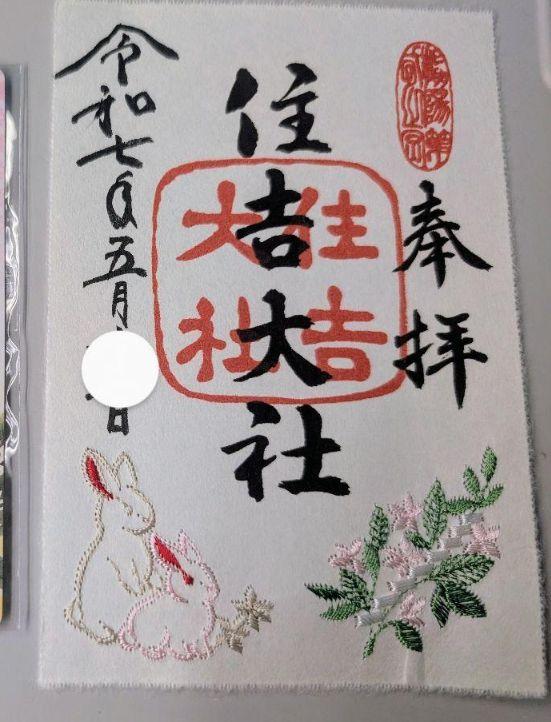 奉拝
住吉大社
住吉
大社
令和七年五月 日